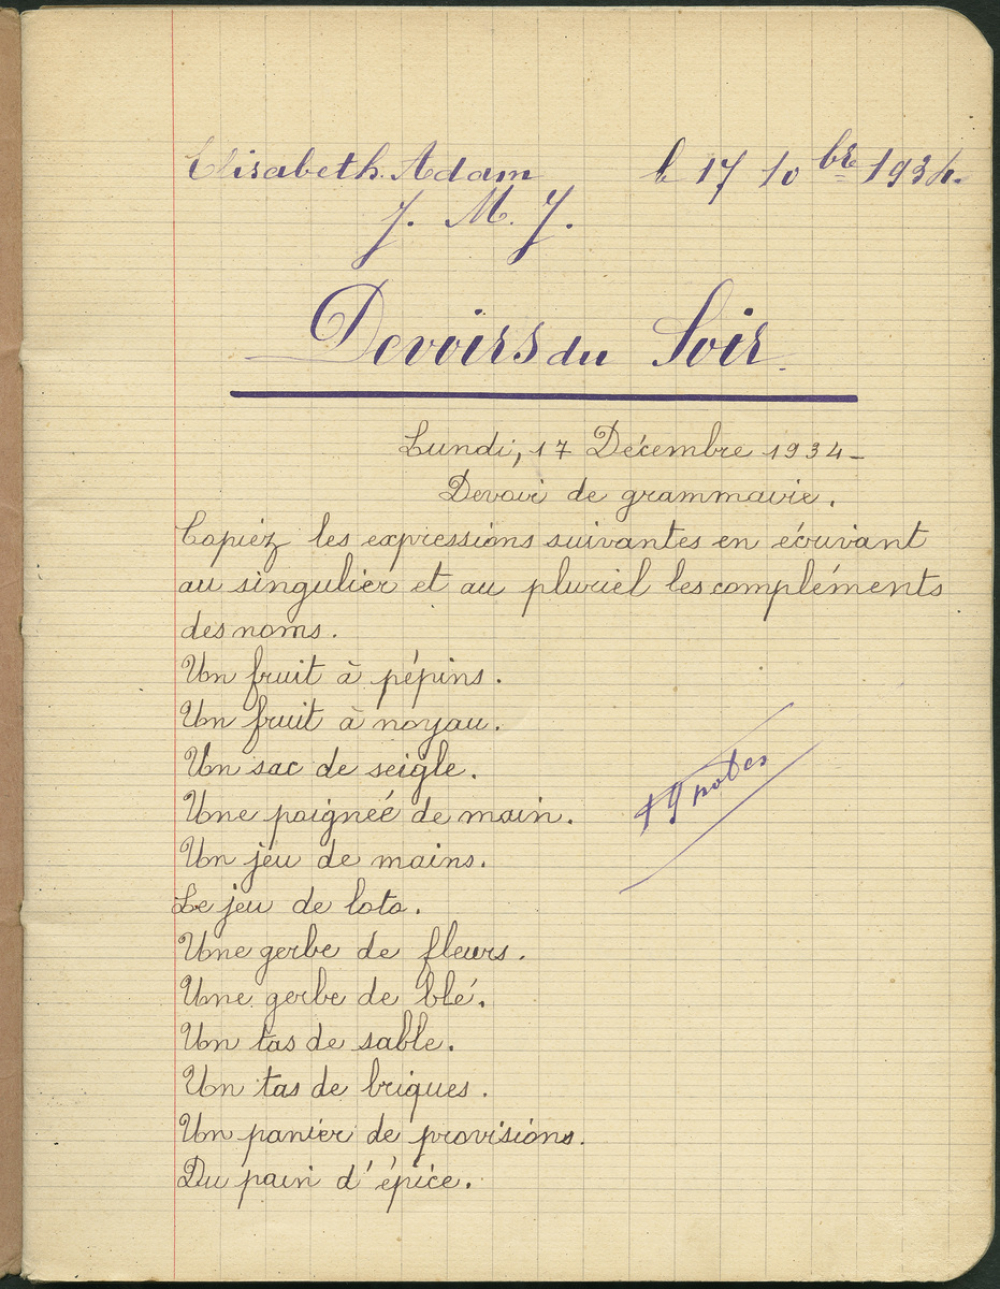 Elisabeth Adam le 17 10bre 1934.
J. M. J.
Devoirs du Soir.
Lundi, 17 Décembre 1934-
Devoir de grammaire.
Copiez les expressions suivantes en écrivant
au singulier et au pluriel les compléments
des noms.
Un fruit à pépins.
Un fruit à noyau.
Un sac de seigle.
Une poigneé de main.
Un jeu de mains.
Le jeu de loto.
Une gerbe de fleurs.
Une gerbe de blé.
Un tas de sable.
Un tas de briques.
Un panier de provisions.
Du pain d'épice.
19 notes